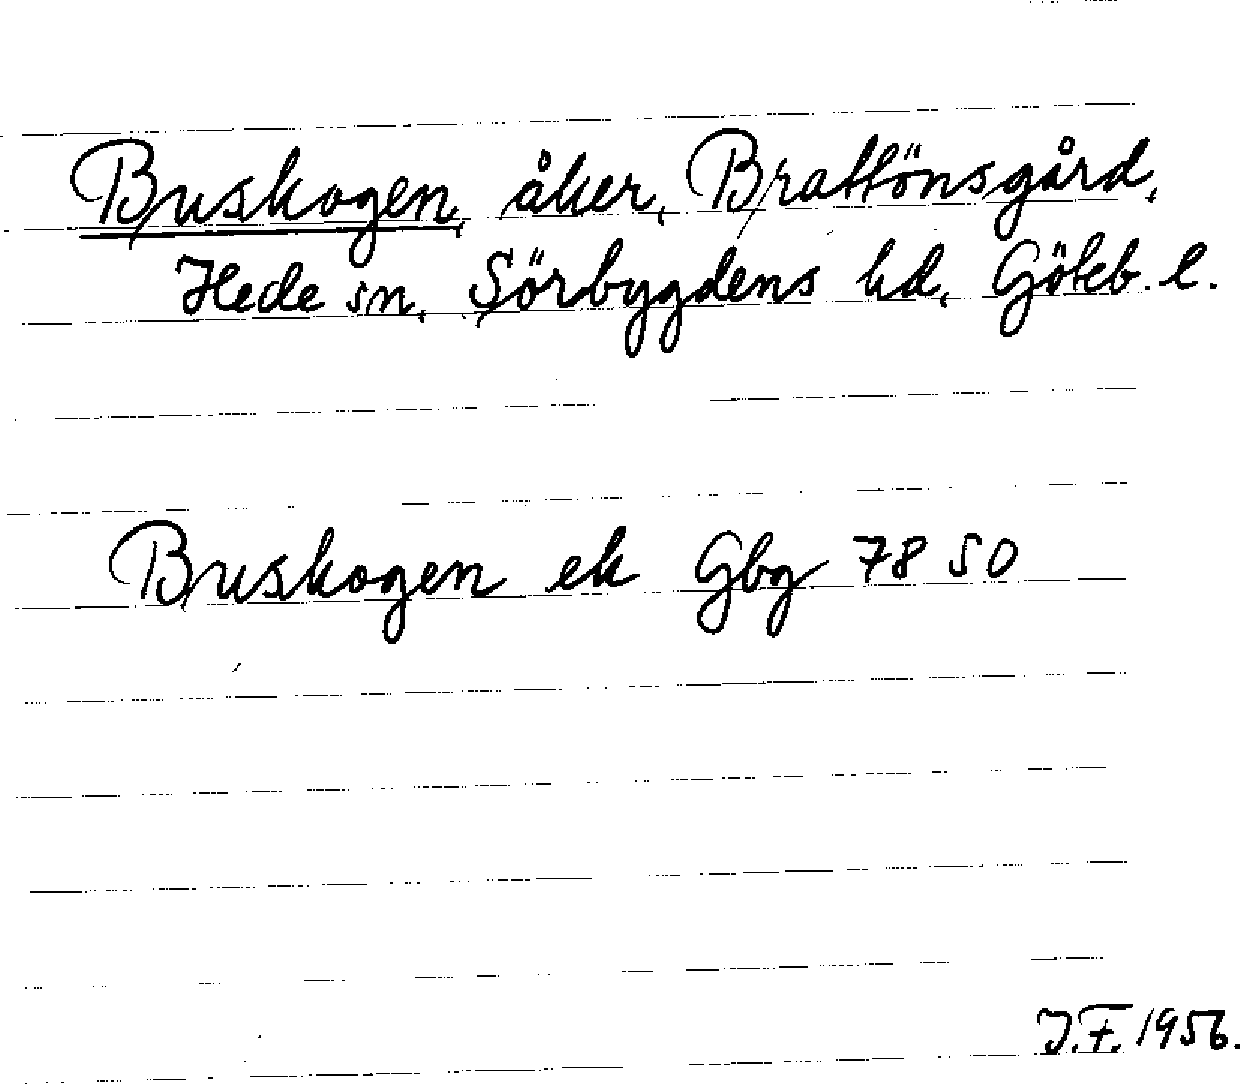 Buskogen, åker, Brattönsgård,
Hede sn, Sörbygdens hd, Göteb. l.
Buskogen ek Gbg 7850
J.F. 1956.